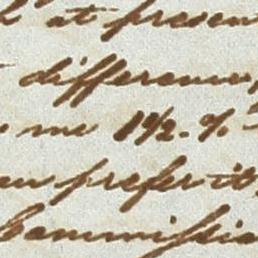 at presen
difference,
me 1½. %
prefer it
Commissio